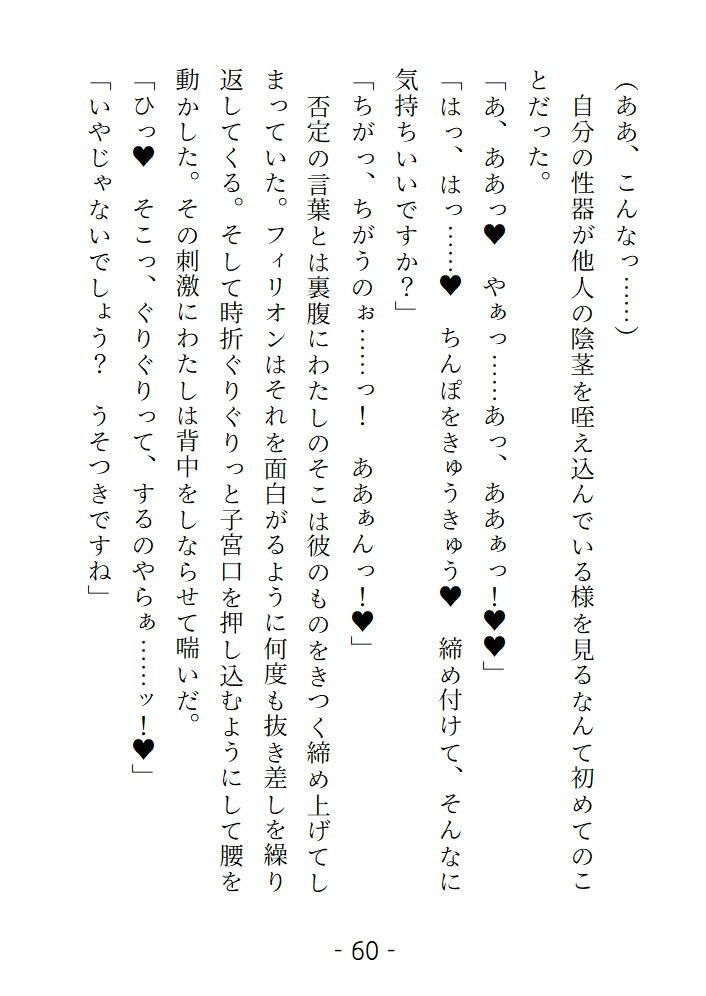 (ああ、こんなっ……)
　自分の性器が他人の陰茎を咥え込んでいる様を見るなんて初めてのこ
とだった。
「あ、ああっ♥　やぁっ……あっ、ああぁっ！♥♥」
「はっ、はっ……♥　ちんぽをきゅうきゅう♥　締め付けて、そんなに
気持ちいいですか？」
「ちがっ、ちがうのぉ……っ！　ああぁんっ！♥」
　否定の言葉とは裏腹にわたしのそこは彼のものをきつく締め上げてし
まっていた。フィリオンはそれを面白がるように何度も抜き差しを繰り
返してくる。そして時折ぐりぐりっと子宮口を押し込むようにして腰を
動かした。その刺激にわたしは背中をしならせて喘いだ。
「ひっ♥　そこっ、ぐりぐりって、するのやらぁ……ッ！♥」
「いやじゃないでしょう？　うそつきですね」
- 60 -